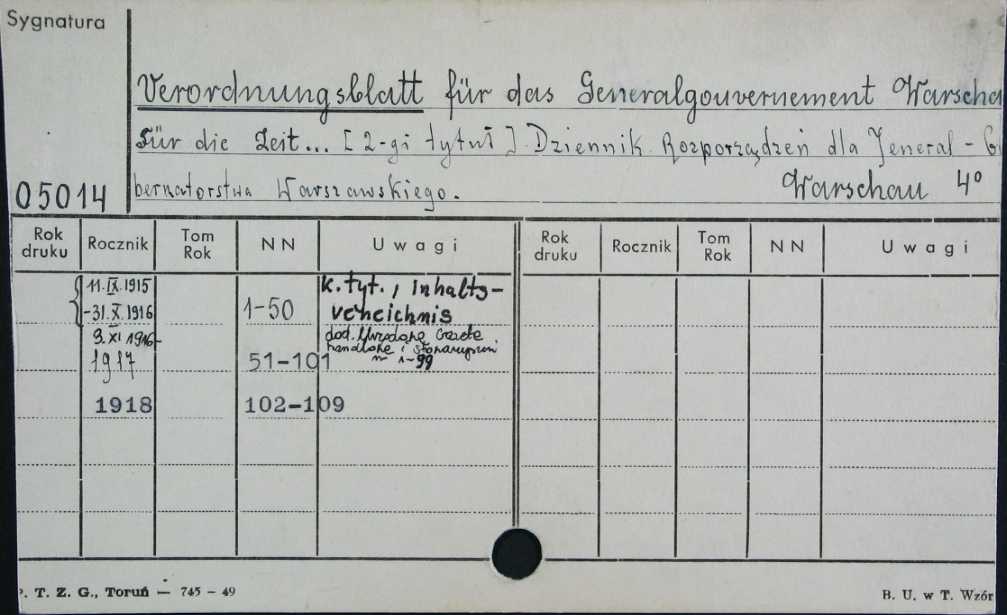 Sygnatura
Verordnungsblatt für das Generalgouvernement Warscha
für die Zeit... [2-gi tytuł] Dziennik Rozporządzeń dla Jeneral-Gu
05014 bernatorstwa Warszawskiego. Warschau 4°
Rok druku Rocznik Tom Rok NN Uwagi Rok druku Rocznik Tom Rok NN Uwagi
11.IX.1915 K.tyt., Inhalts-
-31.X.1916 1-50 verzeichnis
3.XI 1916- dod. Urzędową Gazetę
handlową i
1917 51-101 nr 1-99
1918 102-109
P. T. Z. G., Toruń — 745 - 49 B. U. w T. Wzór